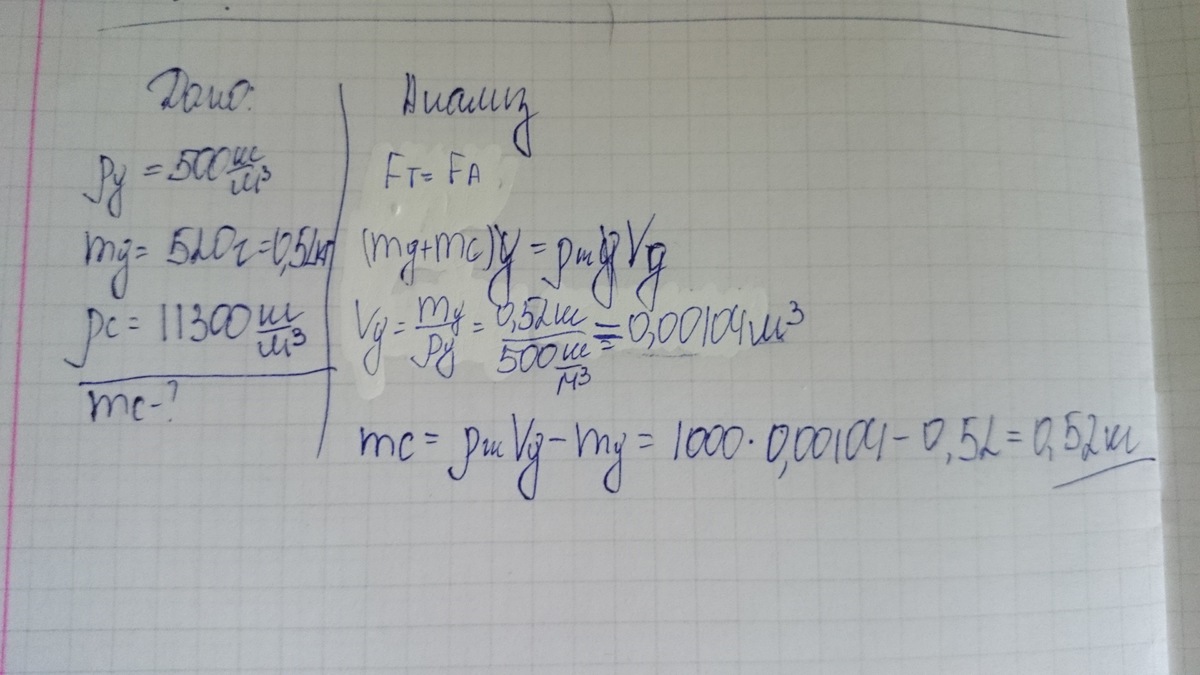 Дано:
ρд = 500 кг/м³
mд = 520г = 0,52кг
ρс = 11300 кг/м³
mс - ?
Анализ
Fт = FА
(mд + mс)g = ρж g Vд
Vд = mд/ρд = 0,52кг/500 кг/м³ = 0,00104м³
mс = ρж Vд - mд = 1000 · 0,00104 - 0,52 = 0,52кг